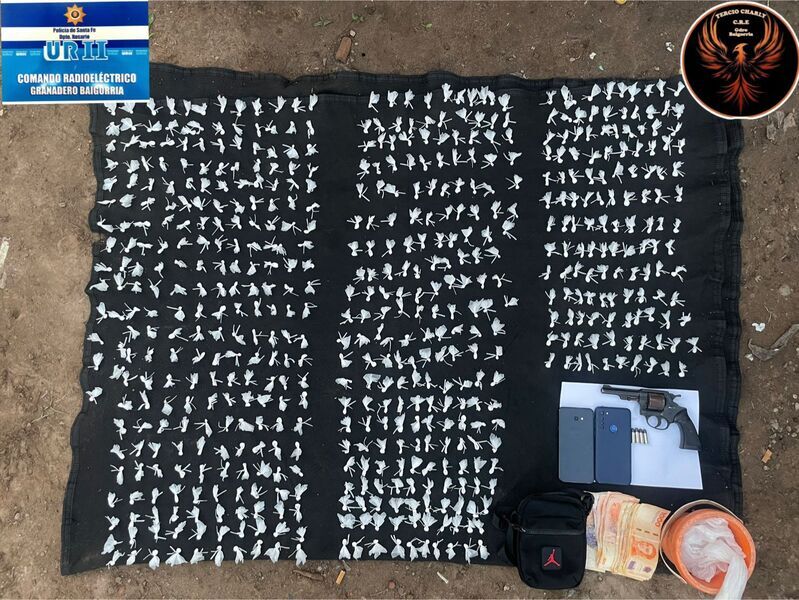 Policía de Santa Fe
Dpto. Rosario
URII
COMANDO RADIOELÉCTRICO
GRANADERO BAIGORRIA
TERCIO CHARLY
C.R.E
Gdro
Baigorria